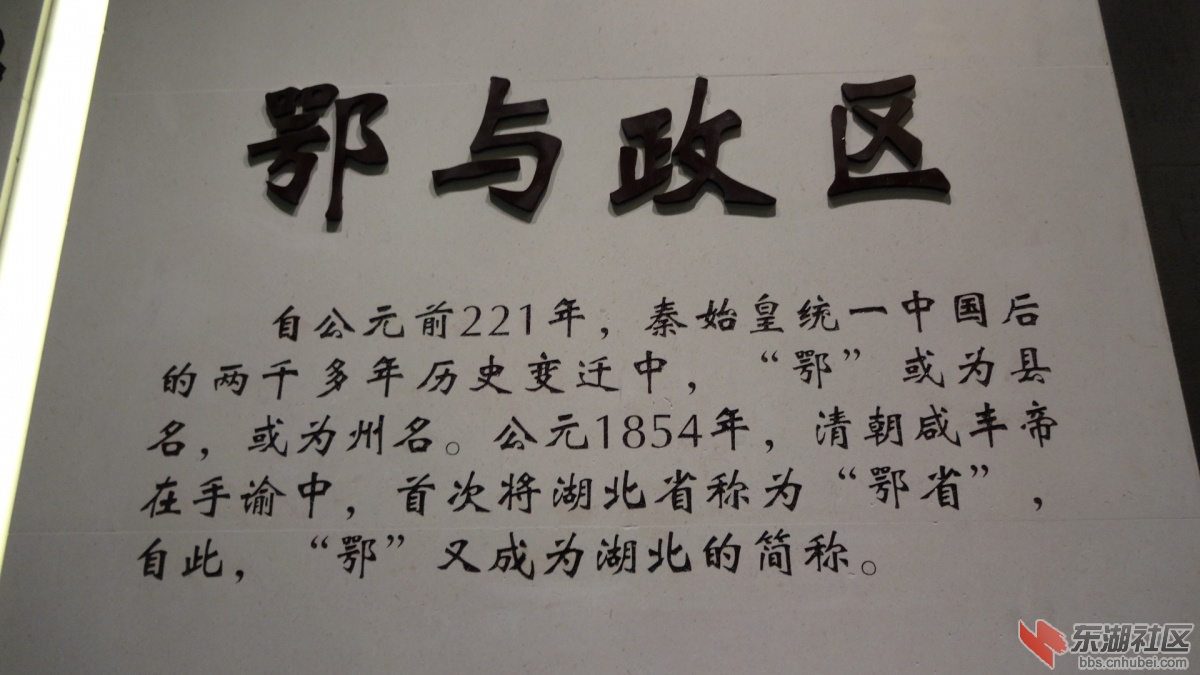 鄂与政区
自公元前221年，秦始皇统一中国后
的两千多年历史变迁中，“鄂”或为县
名，或为州名。公元1854年，清朝咸丰帝
在手谕中，首次将湖北省称为“鄂省”，
自此，“鄂”又成为湖北的简称。
东湖社区
bbs.cnhubei.com